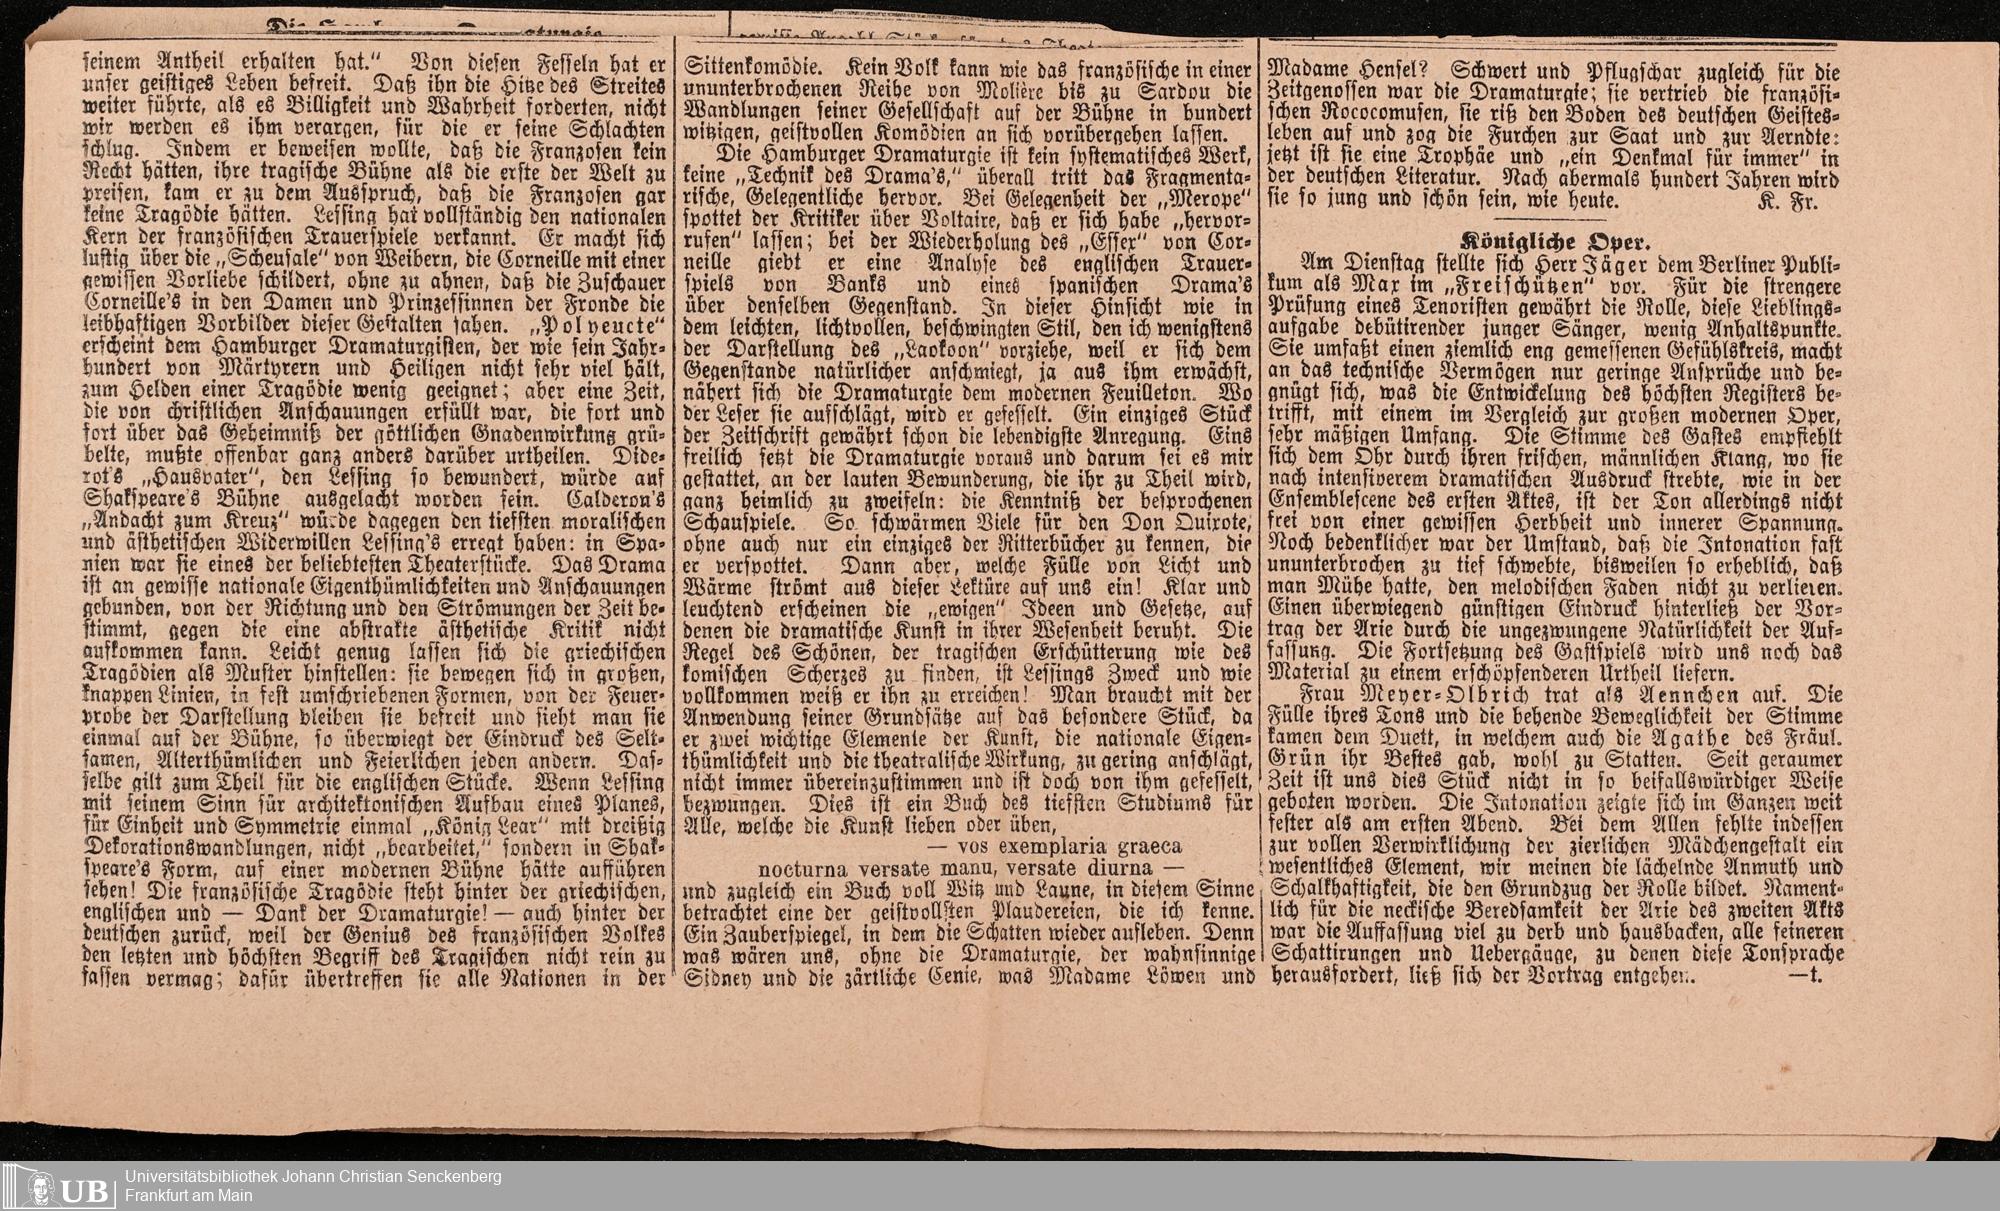 seinem Antheil erhalten hat.“ Von diesen Fesseln hat er
unser geistiges Leben befreit. Daß ihn die Hitze des Streites
weiter führte, als es Billigkeit und Wahrheit forderten, nicht
wir werden es ihm verargen, für die er seine Schlachten
schlug. Indem er beweisen wollte, daß die Franzosen kein
Recht hätten, ihre tragische Bühne als die erste der Welt zu
preisen, kam er zu dem Ausspruch, daß die Franzosen gar
keine Tragödie hätten. Lessing hat vollständig den nationalen
Kern der französischen Trauerspiele verkannt. Er macht sich
lustig über die „Scheusale“ von Weibern, die Corneille mit einer
gewissen Vorliebe schildert, ohne zu ahnen, daß die Zuschauer
Corneille's in den Damen und Prinzessinnen der Fronde die
leibhaftigen Vorbilder dieser Gestalten sahen. „Polyeucte“
erscheint dem Hamburger Dramaturgisten, der wie sein Jahr-
hundert von Märtyrern und Heiligen nicht sehr viel hält,
zum Helden einer Tragödie wenig geeignet; aber eine Zeit,
die von christlichen Anschauungen erfüllt war, die fort und
fort über das Geheimniß der göttlichen Gnadenwirkung grü-
belte, mußte offenbar ganz anders darüber urtheilen. Dide-
rot's „Hausvater“, den Lessing so bewundert, würde auf
Shakspeare's Bühne ausgelacht worden sein. Calderon's
„Andacht zum Kreuz“ würde dagegen den tiefsten moralischen
und ästhetischen Widerwillen Lessing's erregt haben: in Spa-
nien war sie eines der beliebtesten Theaterstücke. Das Drama
ist an gewisse nationale Eigenthümlichkeiten und Anschauungen
gebunden, von der Richtung und den Strömungen der Zeit be-
stimmt, gegen die eine abstrakte ästhetische Kritik nicht
aufkommen kann. Leicht genug lassen sich die griechischen
Tragödien als Muster hinstellen: sie bewegen sich in großen,
knappen Linien, in fest umschriebenen Formen, von der Feuer-
probe der Darstellung bleiben sie befreit und sieht man sie
einmal auf der Bühne, so überwiegt der Eindruck des Selt-
samen, Alterthümlichen und Feierlichen jeden andern. Das-
selbe gilt zum Theil für die englischen Stücke. Wenn Lessing
mit seinem Sinn für architektonischen Aufbau eines Planes,
für Einheit und Symmetrie einmal „König Lear“ mit dreißig
Dekorationswandlungen, nicht „bearbeitet,“ sondern in Shak-
speare's Form, auf einer modernen Bühne hätte aufführen
sehen! Die französische Tragödie steht hinter der griechischen,
englischen und — Dank der Dramaturgie! — auch hinter der
deutschen zurück, weil der Genius des französischen Volkes
den letzten und höchsten Begriff des Tragischen nicht rein zu
fassen vermag; dafür übertreffen sie alle Nationen in der
Sittenkomödie. Kein Volk kann wie das französische in einer
ununterbrochenen Reihe von Molière bis zu Sardou die
Wandlungen seiner Gesellschaft auf der Bühne in hundert
witzigen, geistvollen Komödien an sich vorübergehen lassen.
Die Hamburger Dramaturgie ist kein systematisches Werk,
keine „Technik des Drama's,“ überall tritt das Fragmenta-
rische, Gelegentliche hervor. Bei Gelegenheit der „Merope“
spottet der Kritiker über Voltaire, daß er sich habe „hervor-
rufen“ lassen; bei der Wiederholung des „Essex“ von Cor-
neille giebt er eine Analyse des englischen Trauer-
spiels von Banks und eines spanischen Drama's
über denselben Gegenstand. In dieser Hinsicht wie in
dem leichten, lichtvollen, beschwingten Stil, den ich wenigstens
der Darstellung des „Laokoon“ vorziehe, weil er sich dem
Gegenstande natürlicher anschmiegt, ja aus ihm erwächst,
nähert sich die Dramaturgie dem modernen Feuilleton. Wo
der Leser sie aufschlägt, wird er gefesselt. Ein einziges Stück
der Zeitschrift gewährt schon die lebendigste Anregung. Eins
freilich setzt die Dramaturgie voraus und darum sei es mir
gestattet, an der lauten Bewunderung, die ihr zu Theil wird,
ganz heimlich zu zweifeln: die Kenntniß der besprochenen
Schauspiele. So schwärmen Viele für den Don Quixote,
ohne auch nur ein einziges der Ritterbücher zu kennen, die
er verspottet. Dann aber, welche Fülle von Licht und
Wärme strömt aus dieser Lektüre auf uns ein! Klar und
leuchtend erscheinen die „ewigen“ Ideen und Gesetze, auf
denen die dramatische Kunst in ihrer Wesenheit beruht. Die
Regel des Schönen, der tragischen Erschütterung wie des
komischen Scherzes zu finden, ist Lessings Zweck und wie
vollkommen weiß er ihn zu erreichen! Man braucht mit der
Anwendung seiner Grundsätze auf das besondere Stück, da
er zwei wichtige Elemente der Kunst, die nationale Eigen-
thümlichkeit und die theatralische Wirkung, zu gering anschlägt,
nicht immer übereinzustimmen und ist doch von ihm gefesselt,
bezwungen. Dies ist ein Buch des tiefsten Studiums für
Alle, welche die Kunst lieben oder üben,
— vos exemplaria graeca
nocturna versate manu, versate diurna —
und zugleich ein Buch voll Witz und Laune, in diesem Sinne
betrachtet eine der geistvollsten Plaudereien, die ich kenne.
Ein Zauberspiegel, in dem die Schatten wieder aufleben. Denn
was wären uns, ohne die Dramaturgie, der wahnsinnige
Sidney und die zärtliche Cenie, was Madame Löwen und
Madame Hensel? Schwert und Pflugschar zugleich für die
Zeitgenossen war die Dramaturgie; sie vertrieb die französi-
schen Rococomusen, sie riß den Boden des deutschen Geistes-
leben auf und zog die Furchen zur Saat und zur Aerndte:
jetzt ist sie eine Trophäe und „ein Denkmal für immer“ in
der deutschen Literatur. Nach abermals hundert Jahren wird
sie so jung und schön sein, wie heute. K. Fr.
Königliche Oper.
Am Dienstag stellte sich Herr Jäger dem Berliner Publi-
kum als Max im „Freischützen“ vor. Für die strengere
Prüfung eines Tenoristen gewährt die Rolle, diese Lieblings-
aufgabe debütirender junger Sänger, wenig Anhaltspunkte.
Sie umfaßt einen ziemlich eng gemessenen Gefühlskreis, macht
an das technische Vermögen nur geringe Ansprüche und be-
gnügt sich, was die Entwickelung des höchsten Registers be-
trifft, mit einem im Vergleich zur großen modernen Oper,
sehr mäßigen Umfang. Die Stimme des Gastes empfiehlt
sich dem Ohr durch ihren frischen, männlichen Klang, wo sie
nach intensiverem dramatischen Ausdruck strebte, wie in der
Ensemblescene des ersten Aktes, ist der Ton allerdings nicht
frei von einer gewissen Herbheit und innerer Spannung.
Noch bedenklicher war der Umstand, daß die Intonation fast
ununterbrochen zu tief schwebte, bisweilen so erheblich, daß
man Mühe hatte, den melodischen Faden nicht zu verlieren.
Einen überwiegend günstigen Eindruck hinterließ der Vor-
trag der Arie durch die ungezwungene Natürlichkeit der Auf-
fassung. Die Fortsetzung des Gastspiels wird uns noch das
Material zu einem erschöpfenderen Urtheil liefern.
Frau Meyer-Olbrich trat als Aennchen auf. Die
Fülle ihres Tons und die behende Beweglichkeit der Stimme
kamen dem Duett, in welchem auch die Agathe des Fräul.
Grün ihr Bestes gab, wohl zu Statten. Seit geraumer
Zeit ist uns dies Stück nicht in so beifallswürdiger Weise
geboten worden. Die Intonation zeigte sich im Ganzen weit
fester als am ersten Abend. Bei dem Allen fehlte indessen
zur vollen Verwirklichung der zierlichen Mädchengestalt ein
wesentliches Element, wir meinen die lächelnde Anmuth und
Schalkhaftigkeit, die den Grundzug der Rolle bildet. Nament-
lich für die neckische Beredsamkeit der Arie des zweiten Akts
war die Auffassung viel zu derb und hausbacken, alle feineren
Schattirungen und Uebergänge, zu denen diese Tonsprache
herausfordert, ließ sich der Vortrag entgehen. —t.
UB
Universitätsbibliothek Johann Christian Senckenberg
Frankfurt am Main